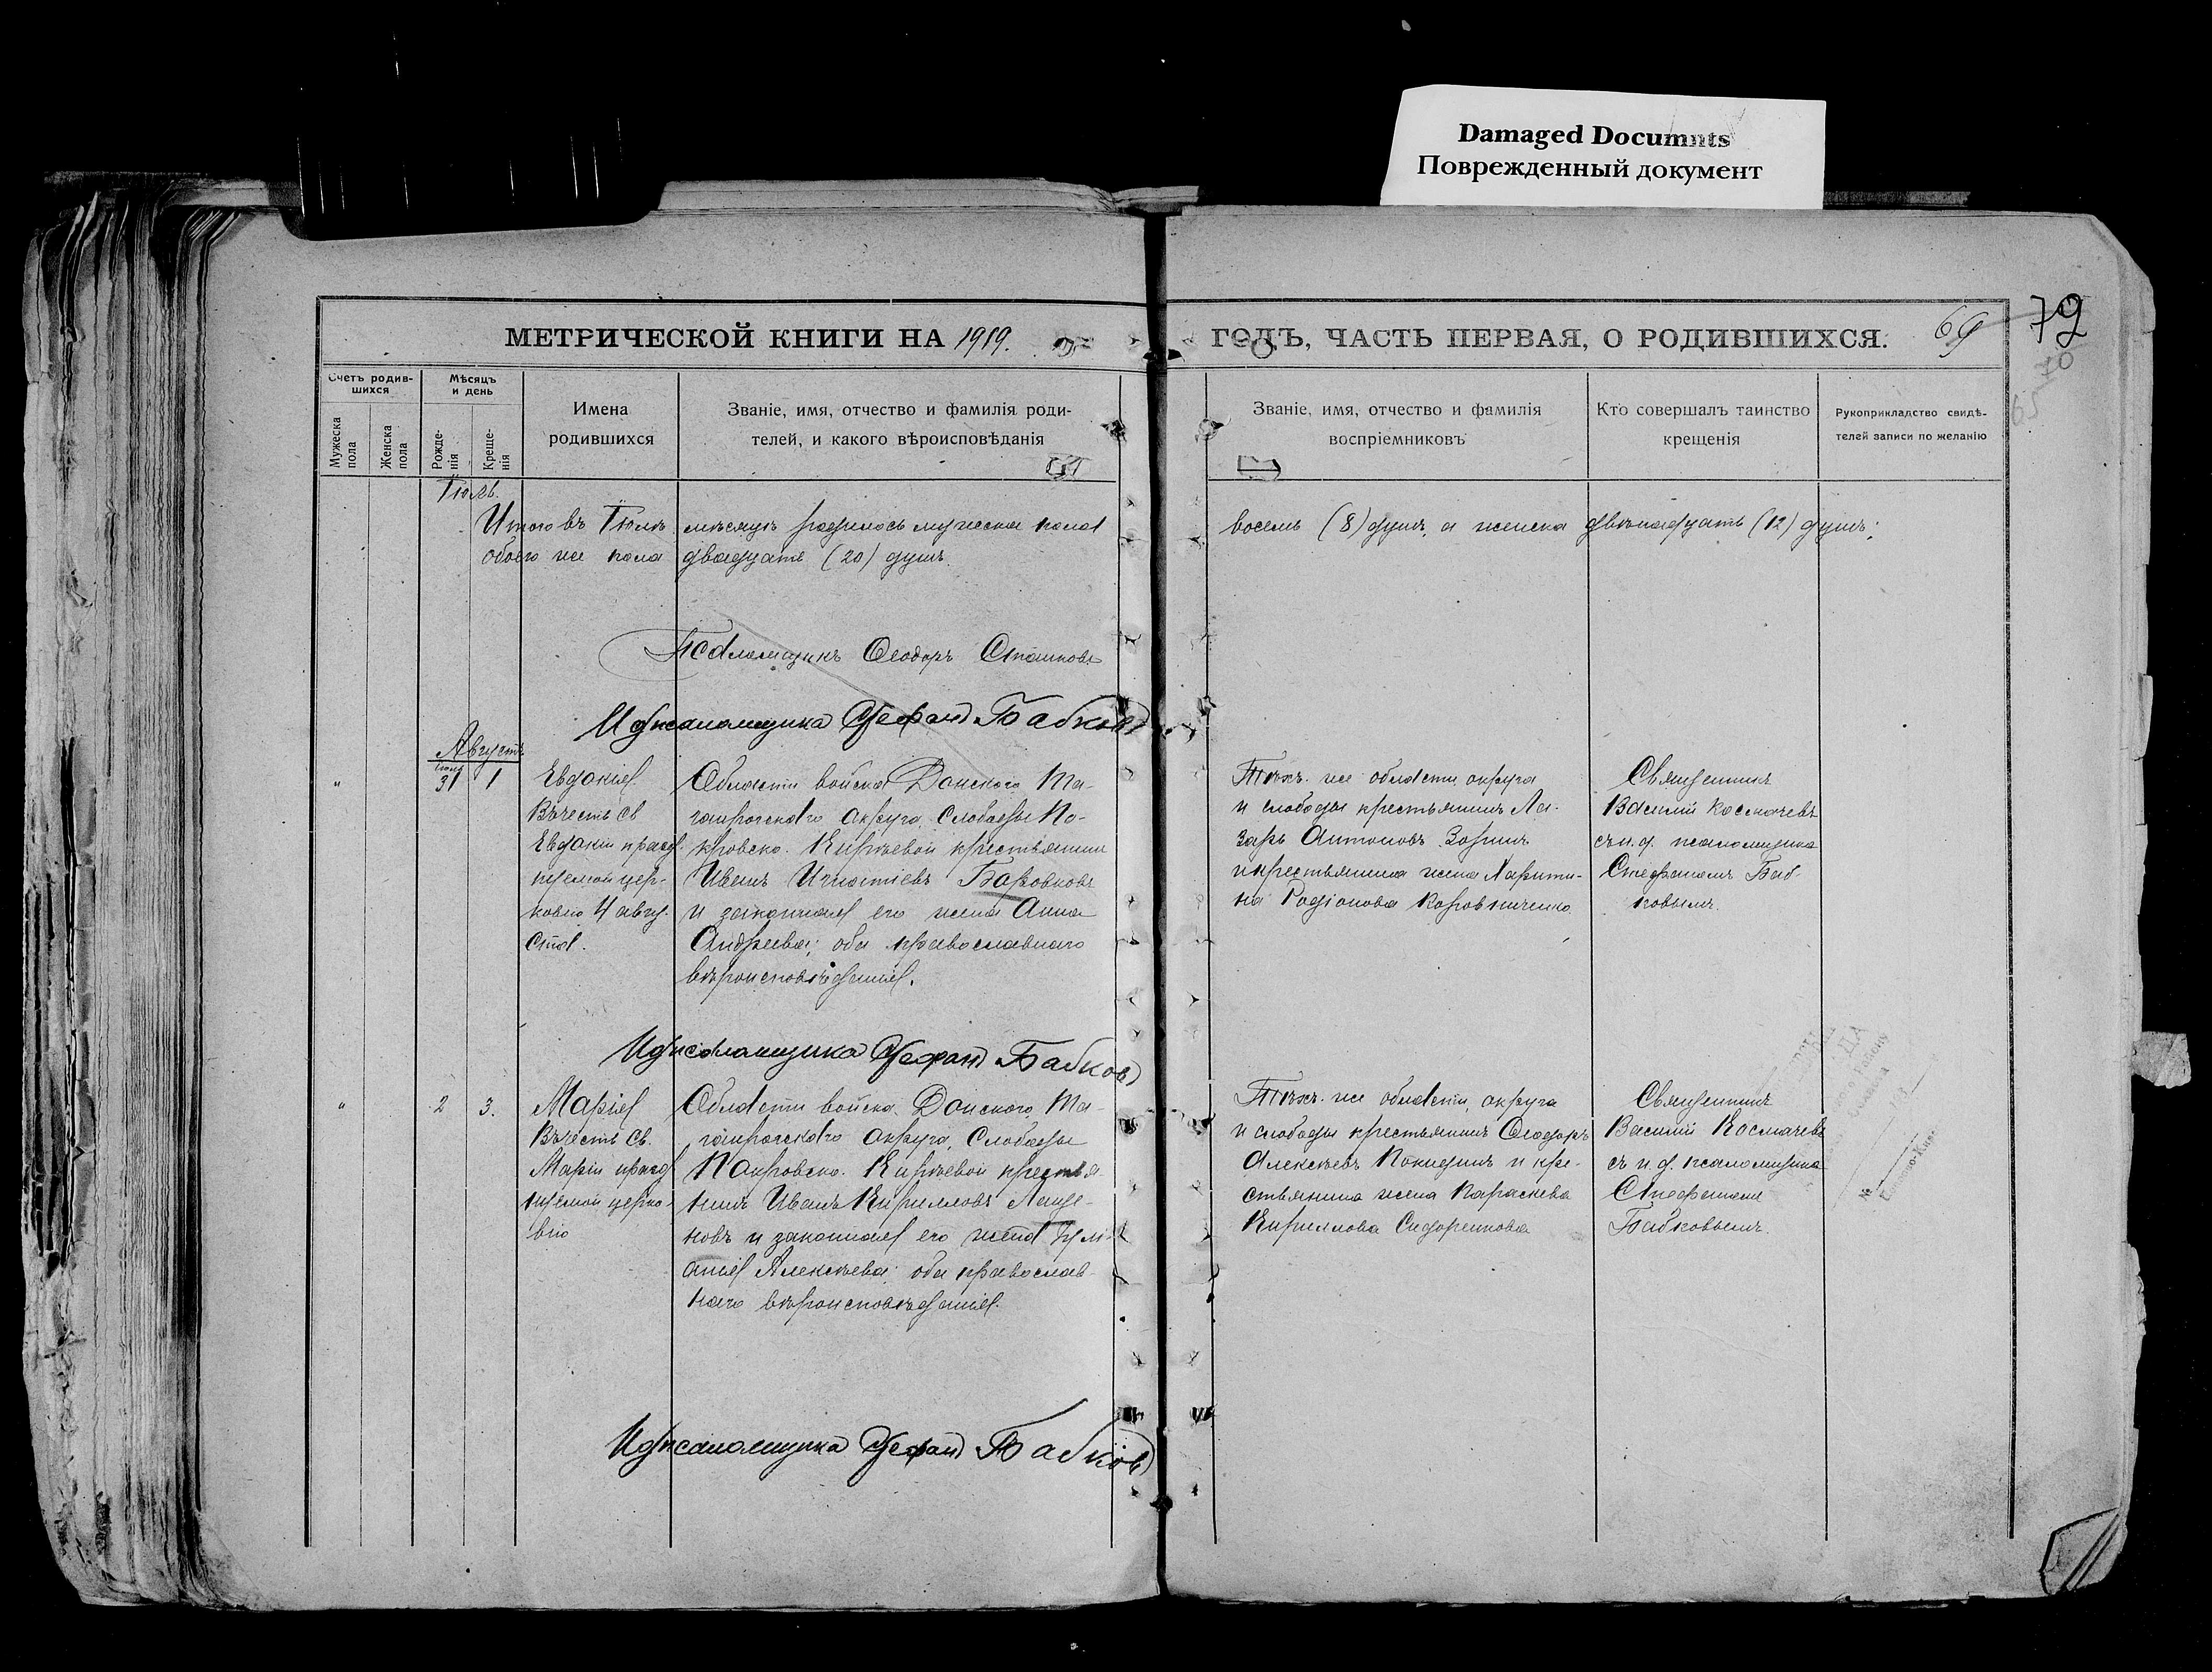 Damaged Documnts
Поврежденный документ
МЕТРИЧЕСКОЙ КНИГИ НА 1919.
ГОДЪ, ЧАСТЬ ПЕРВАЯ, О РОДИВШИХСЯ.
69
79
70
65
Счетъ родив-
шихся
Мужеска
пола
Женска
пола
Мѣсяцъ
и день
Рожде-
нія
Креще-
нія
Имена
родившихся
Званіе, имя, отчество и фамилія роди-
телей, и какого вѣроисповѣданія
Званіе, имя, отчество и фамилія
воспріемниковъ
Кто совершалъ таинство
крещенія
Рукоприкладство свидѣ-
телей записи по желанію
Іюль.
Итого въ Іюлѣ мѣсяцѣ родилось мужеска пола
восемь (8) душъ, а женска двѣнадцать (12) душъ;
обоего же пола двадцать (20) душъ.
Псаломщикъ Ѳеодоръ
И д псаломщика Стефанъ Бабковъ
Августъ
31
1
Евдокія
Въ честь св
Евдокіи празд.
нуемой цер-
ковію 4 авгу.
ста.
Области войска Донского Та-
ганрогскаго округа, слободы По-
кровско. Кирѣевой крестьянинъ
Иванъ Игнатіевъ
и законная его жена Анна
Андреева; оба православнаго
вѣроисповѣданія.
Тѣхъ. же области, округа
и слободы крестьянинъ Ла-
зарь Антоновъ Зоринъ
и крестьянина жена Харити-
на Родіонова Коровниченко
Священникъ
Василій Космачевъ
съ и. д. псаломщика
Стефаномъ Баб-
ковымъ.
И д псаломщика Стефанъ Бабковъ
2
3.
Марія
Въ честь Св.
Маріи празд
нуемой церко-
вію
Области войска Донского, Та-
ганрогскаго округа, слободы
Покровско. Кирѣевой крестья-
нинъ Иванъ Кирилловъ Лаще-
новъ и законная его жена Іулі-
анія Алексѣева; оба православ
наго вѣроисповѣданія.
Тѣхъ. же области, округа
и слободы крестьянинъ Ѳеодоръ
Алексѣевъ и кре-
стьянина жена Параскева
Кириллова Сидоренкова
Священникъ
Василій Космачевъ
съ и. д. псаломщика
Стефаномъ
Бабковымъ.
И д псаломщика Стефанъ Бабковъ